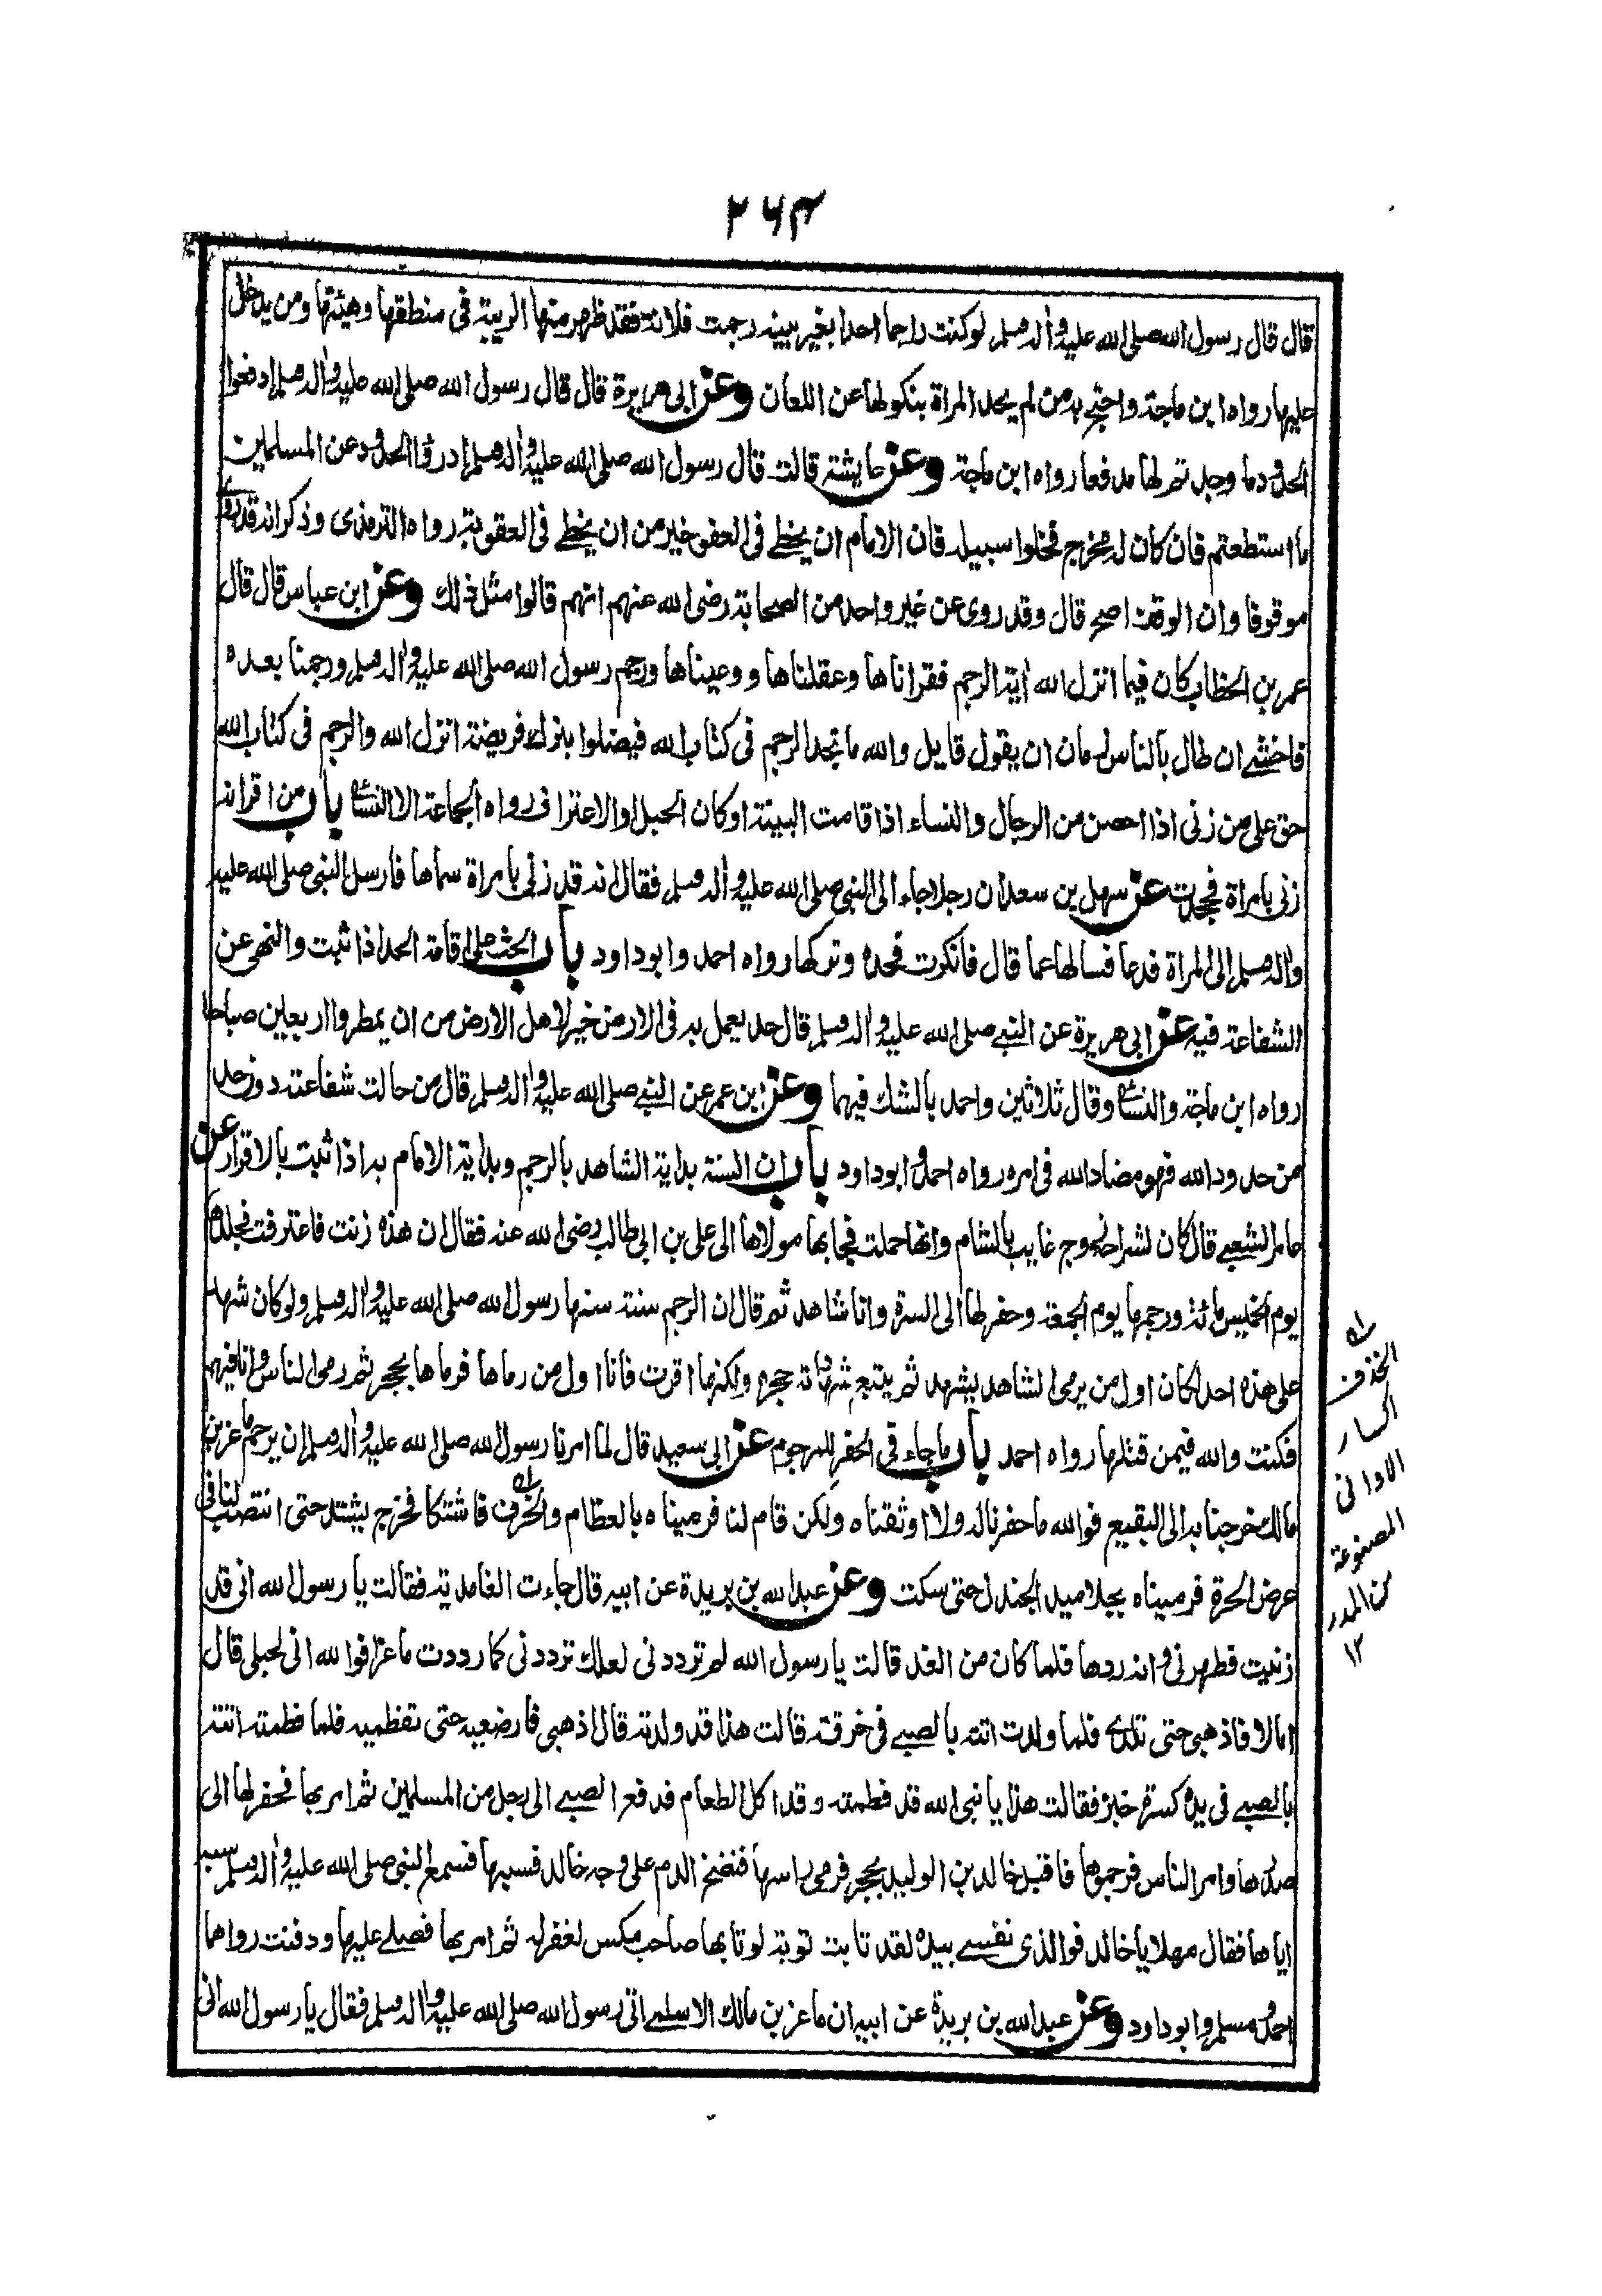 ٢٦٣
قال قال رسول الله صلى الله عليه واله وسلم لو كنت راجما احدا بغير بينة رجمت فلانة فقد ظهر منها الريبة فى منطقها وهيئتها ومن يدخل
عليها رواه ابن ماجة واحتج به من لم يحد المراة بنكولها عن اللعان وعن ابى هريرة قال قال رسول الله صلى الله عليه واله وسلم ادفعوا
الحدود ما وجدتم لها مدفعا رواه ابن ماجة وعن عايشة قالت قال رسول الله صلى الله عليه واله وسلم ادرؤا الحدود عن المسلمين
ما استطعتم فان كان له مخرج فخلوا سبيله فان الامام ان يخطى فى العفو خير من ان يخطى فى العقوبة رواه الترمذى وذكر انه قد روى
موقوفا وان الوقف اصح قال وقد روى عن غير واحد من الصحابة رضى الله عنهم انهم قالوا مثل ذلك وعن ابن عباس قال قال
عمر بن الخطاب كان فيما انزل الله اية الرجم فقراناها وعقلناها ووعيناها ورجم رسول الله صلى الله عليه واله وسلم ورجمنا بعده
فاخشى ان طال بالناس زمان ان يقول قايل والله ما نجد الرجم فى كتاب الله فيضلوا بترك فريضة انزل الله والرجم فى كتاب الله
حق على من زنى اذا احصن من الرجال والنساء اذا قامت البينة او كان الحبل او الاعتراف رواه الجماعة الا النسائى باب من اقر انه
زنى بامراة فجحدت عن سهل بن سعد ان رجلا جاء الى النبى صلى الله عليه واله وسلم فقال انه قد زنى بامراة سماها فارسل النبى صلى الله عليه
واله وسلم الى المراة فدعا فسالها عما قال فانكرت فحده وتركها رواه احمد وابو داود باب الحث على اقامة الحد اذا ثبت والنهى عن
الشفاعة فيه عن ابى هريرة عن النبى صلى الله عليه واله وسلم قال حد يعمل به فى الارض خير لاهل الارض من ان يمطروا اربعين صباحا
رواه ابن ماجة والنسائى وقال ثلاثين واحمد بالشك فيهما وعن ابن عمر عن النبى صلى الله عليه واله وسلم قال من حالت شفاعته دون حد
من حدود الله فهو مضاد الله فى امره رواه احمد وابو داود باب ان السنة بداية الشاهد بالرجم وبداية الامام به اذا ثبت بالاقرار عن
عامر الشعبى قال كان لشراحة زوج غايب بالشام وانها حملت فجا بها مولاها الى على بن ابى طالب رضى الله عنه فقال ان هذه زنت فاعترفت فجلدها
يوم الخميس مائة ورجمها يوم الجمعة وحفر لها الى السرة وانا شاهد ثم قال ان الرجم سنة سنها رسول الله صلى الله عليه واله وسلم ولو كان شهد
على هذه احد لكان اول من يرمى الشاهد يشهد ثم يتبع شهادته حجره ولكنها اقرت فانا اول من رماها فرماها بحجر ثم رمى الناس وانا فيهم
فكنت والله فيمن قتلها رواه احمد باب ما جاء فى الحفر للمرجوم عن ابى سعيد قال لما امرنا رسول الله صلى الله عليه واله وسلم ان نرجم ماعز بن
مالك خرجنا به الى البقيع فوالله ما حفرنا له ولا اوثقناه ولكن قام لنا فرميناه بالعظام والخزف فاشتكا فخرج يشتد حتى انتصب لنا فى
عرض الحرة فرميناه بجلاميد الجندل حتى سكت وعن عبد الله بن بريدة عن ابيه قال جاءت الغامدية فقالت يا رسول الله انى قد
زنيت فطهرنى وانه ردها فلما كان من الغد قالت يا رسول الله لم ترددنى لعلك ترددنى كما رددت ماعزا فوالله انى لحبلى قال
اما لا فاذهبى حتى تلدى فلما ولدت اتته بالصبى فى خرقة قالت هذا قد ولدته قال اذهبى فارضعيه حتى تفطميه فلما فطمته اتته
بالصبى فى يده كسرة خبز فقالت هذا يا نبى الله قد فطمته وقد اكل الطعام فدفع الصبى الى رجل من المسلمين ثم امر بها فحفر لها الى
صدرها وامر الناس فرجموها فاقبل خالد بن الوليد بحجر فرمى راسها فنضخ الدم على وجه خالد فسبها فسمع النبى صلى الله عليه واله وسلم سبه
اياها فقال مهلا يا خالد فوالذى نفسى بيده لقد تابت توبة لو تابها صاحب مكس لغفر له ثم امر بها فصلى عليها ودفنت رواهما
احمد ومسلم وابو داود وعن عبد الله بن بريدة عن ابيه ان ماعز بن مالك الاسلمى اتى رسول الله صلى الله عليه واله وسلم فقال يا رسول الله انى
الخذف
الاوانى
المصنوعة
من المدر
١٢